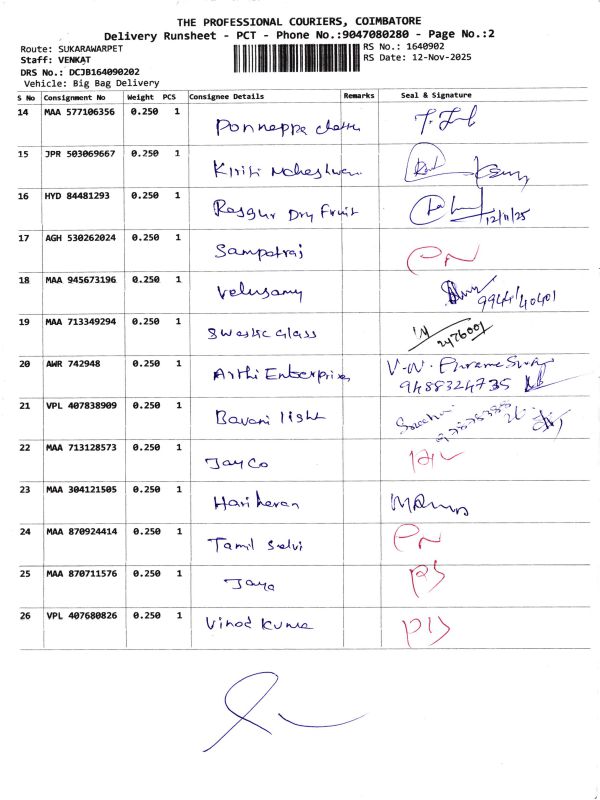 THE PROFESSIONAL COURIERS, COIMBATORE
Delivery Runsheet - PCT - Phone No.:9047080280 - Page No.:2
Route: SUKARAWARPET RS No.: 1640902
Staff: VENKAT RS Date: 12-Nov-2025
DRS No.: DCJB164090202
Vehicle: Big Bag Delivery
S No Consignment No Weight PCS Consignee Details Remarks Seal & Signature
14 MAA 577106356 0.250 1 Ponneppa
15 JPR 503069667 0.250 1 Kiriti Maheshwari
16 HYD 84481293 0.250 1 Dry Fruit 12/11/25
17 AGH 530262024 0.250 1 Sampatraj
18 MAA 945673196 0.250 1 Velusamy
19 MAA 713349294 0.250 1 Swastic Glass 2476001
20 AWR 742948 0.250 1 Arthi Enterprises 9488324735
21 VPL 407838909 0.250 1 Bavani light
22 MAA 713128573 0.250 1 Jay Co
23 MAA 304121505 0.250 1 Hariharan
24 MAA 870924414 0.250 1 Tamil Selvi
25 MAA 870711576 0.250 1 Jaya
26 VPL 407680826 0.250 1 Vinod Kumar